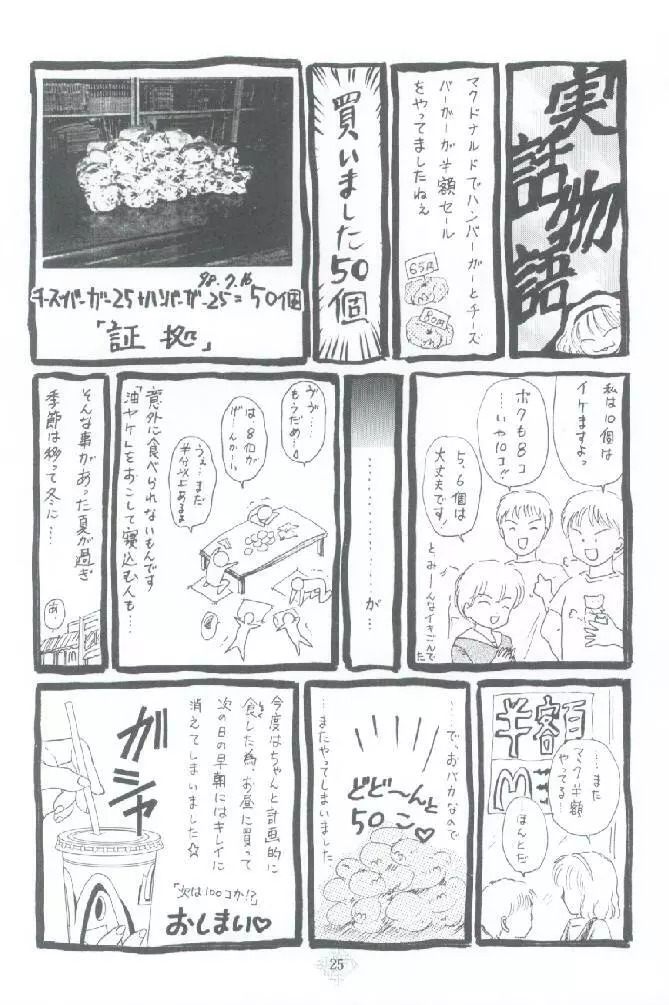 実話物語
マクドナルドでハンバーガーとチーズ
バーガーが半額セール
をやってましたねえ
65円
80円
買いました50個
'98.7.16
チーズバーガー25+ハンバーガー25=50個
「証拠」
私は10個は
イケますよっ
ボクも8コ
…いや10コ!!
5,6個は
大丈夫です!
と、みーんなイキごんでた
……………が…
ヴヴ…
もうだめ…
は8個が
げ…んかい…
うぇ…まだ
半分以上あるよ
意外に食べられないもんです
「油ヤケ」をおこして寝込む人も…
そんな事があった夏が過ぎ
季節は移って冬に…
あ
半額
M
……また
マック半額
やってる
ほんとだ
……で、おバカなので
どど〜んと
50こ♡
…またやってしまいました
今度はちゃんと計画的に
食した為、お昼に買って
次の日の早朝にはキレイに
消えてしまいました☆
ガシャ
「次は100コか!?」
おしまい♡
25